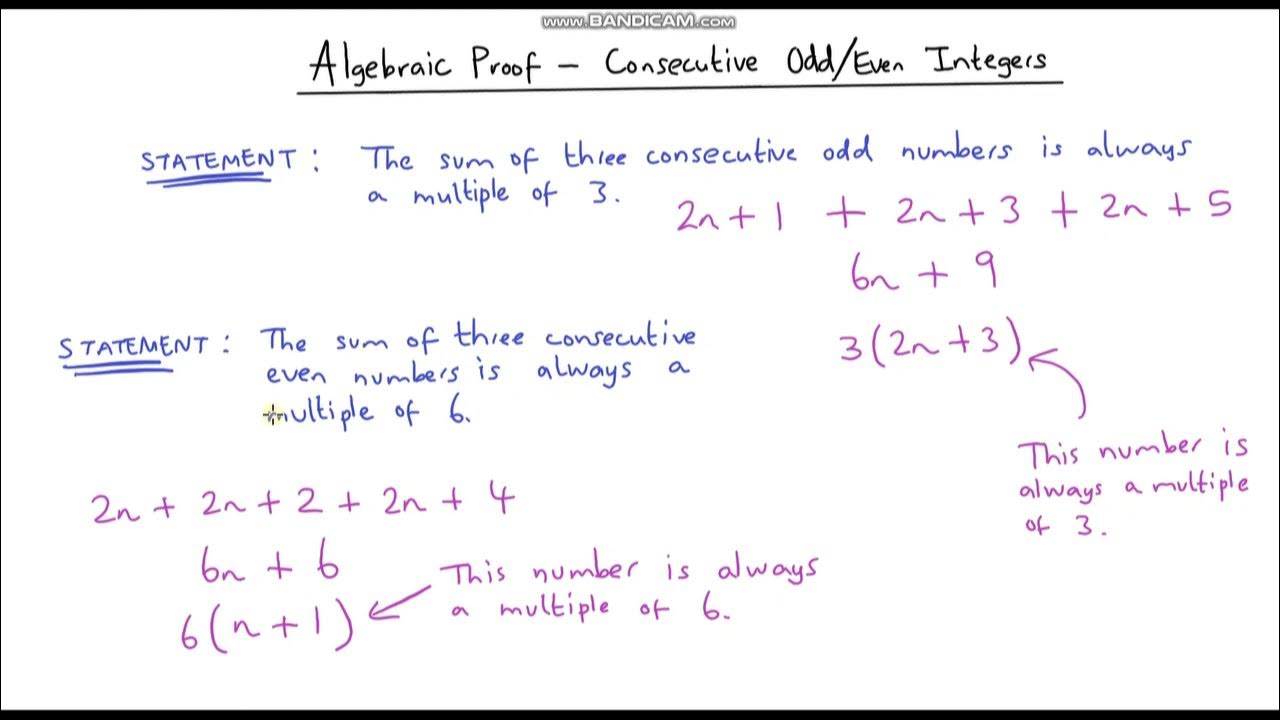 www.BANDICAM.com
Algebraic Proof – Consecutive Odd/Even Integers
STATEMENT : The sum of three consecutive odd numbers is always
a multiple of 3.
2n + 1 + 2n + 3 + 2n + 5
6n + 9
3(2n + 3)
This number is
always a multiple
of 3.
STATEMENT : The sum of three consecutive
even numbers is always a
multiple of 6.
2n + 2n + 2 + 2n + 4
6n + 6
6(n + 1)
This number is always
a multiple of 6.